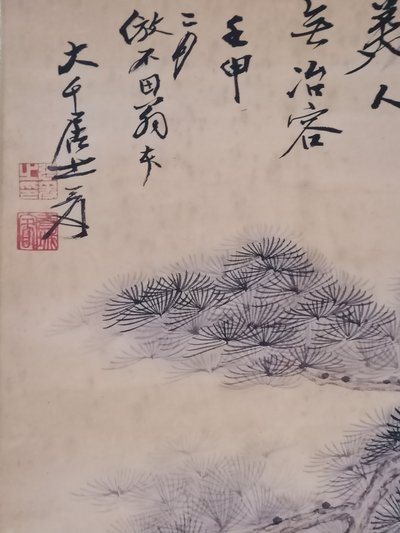 美人
無冶容
壬申
二月
倣石田翁本
大千居士爰